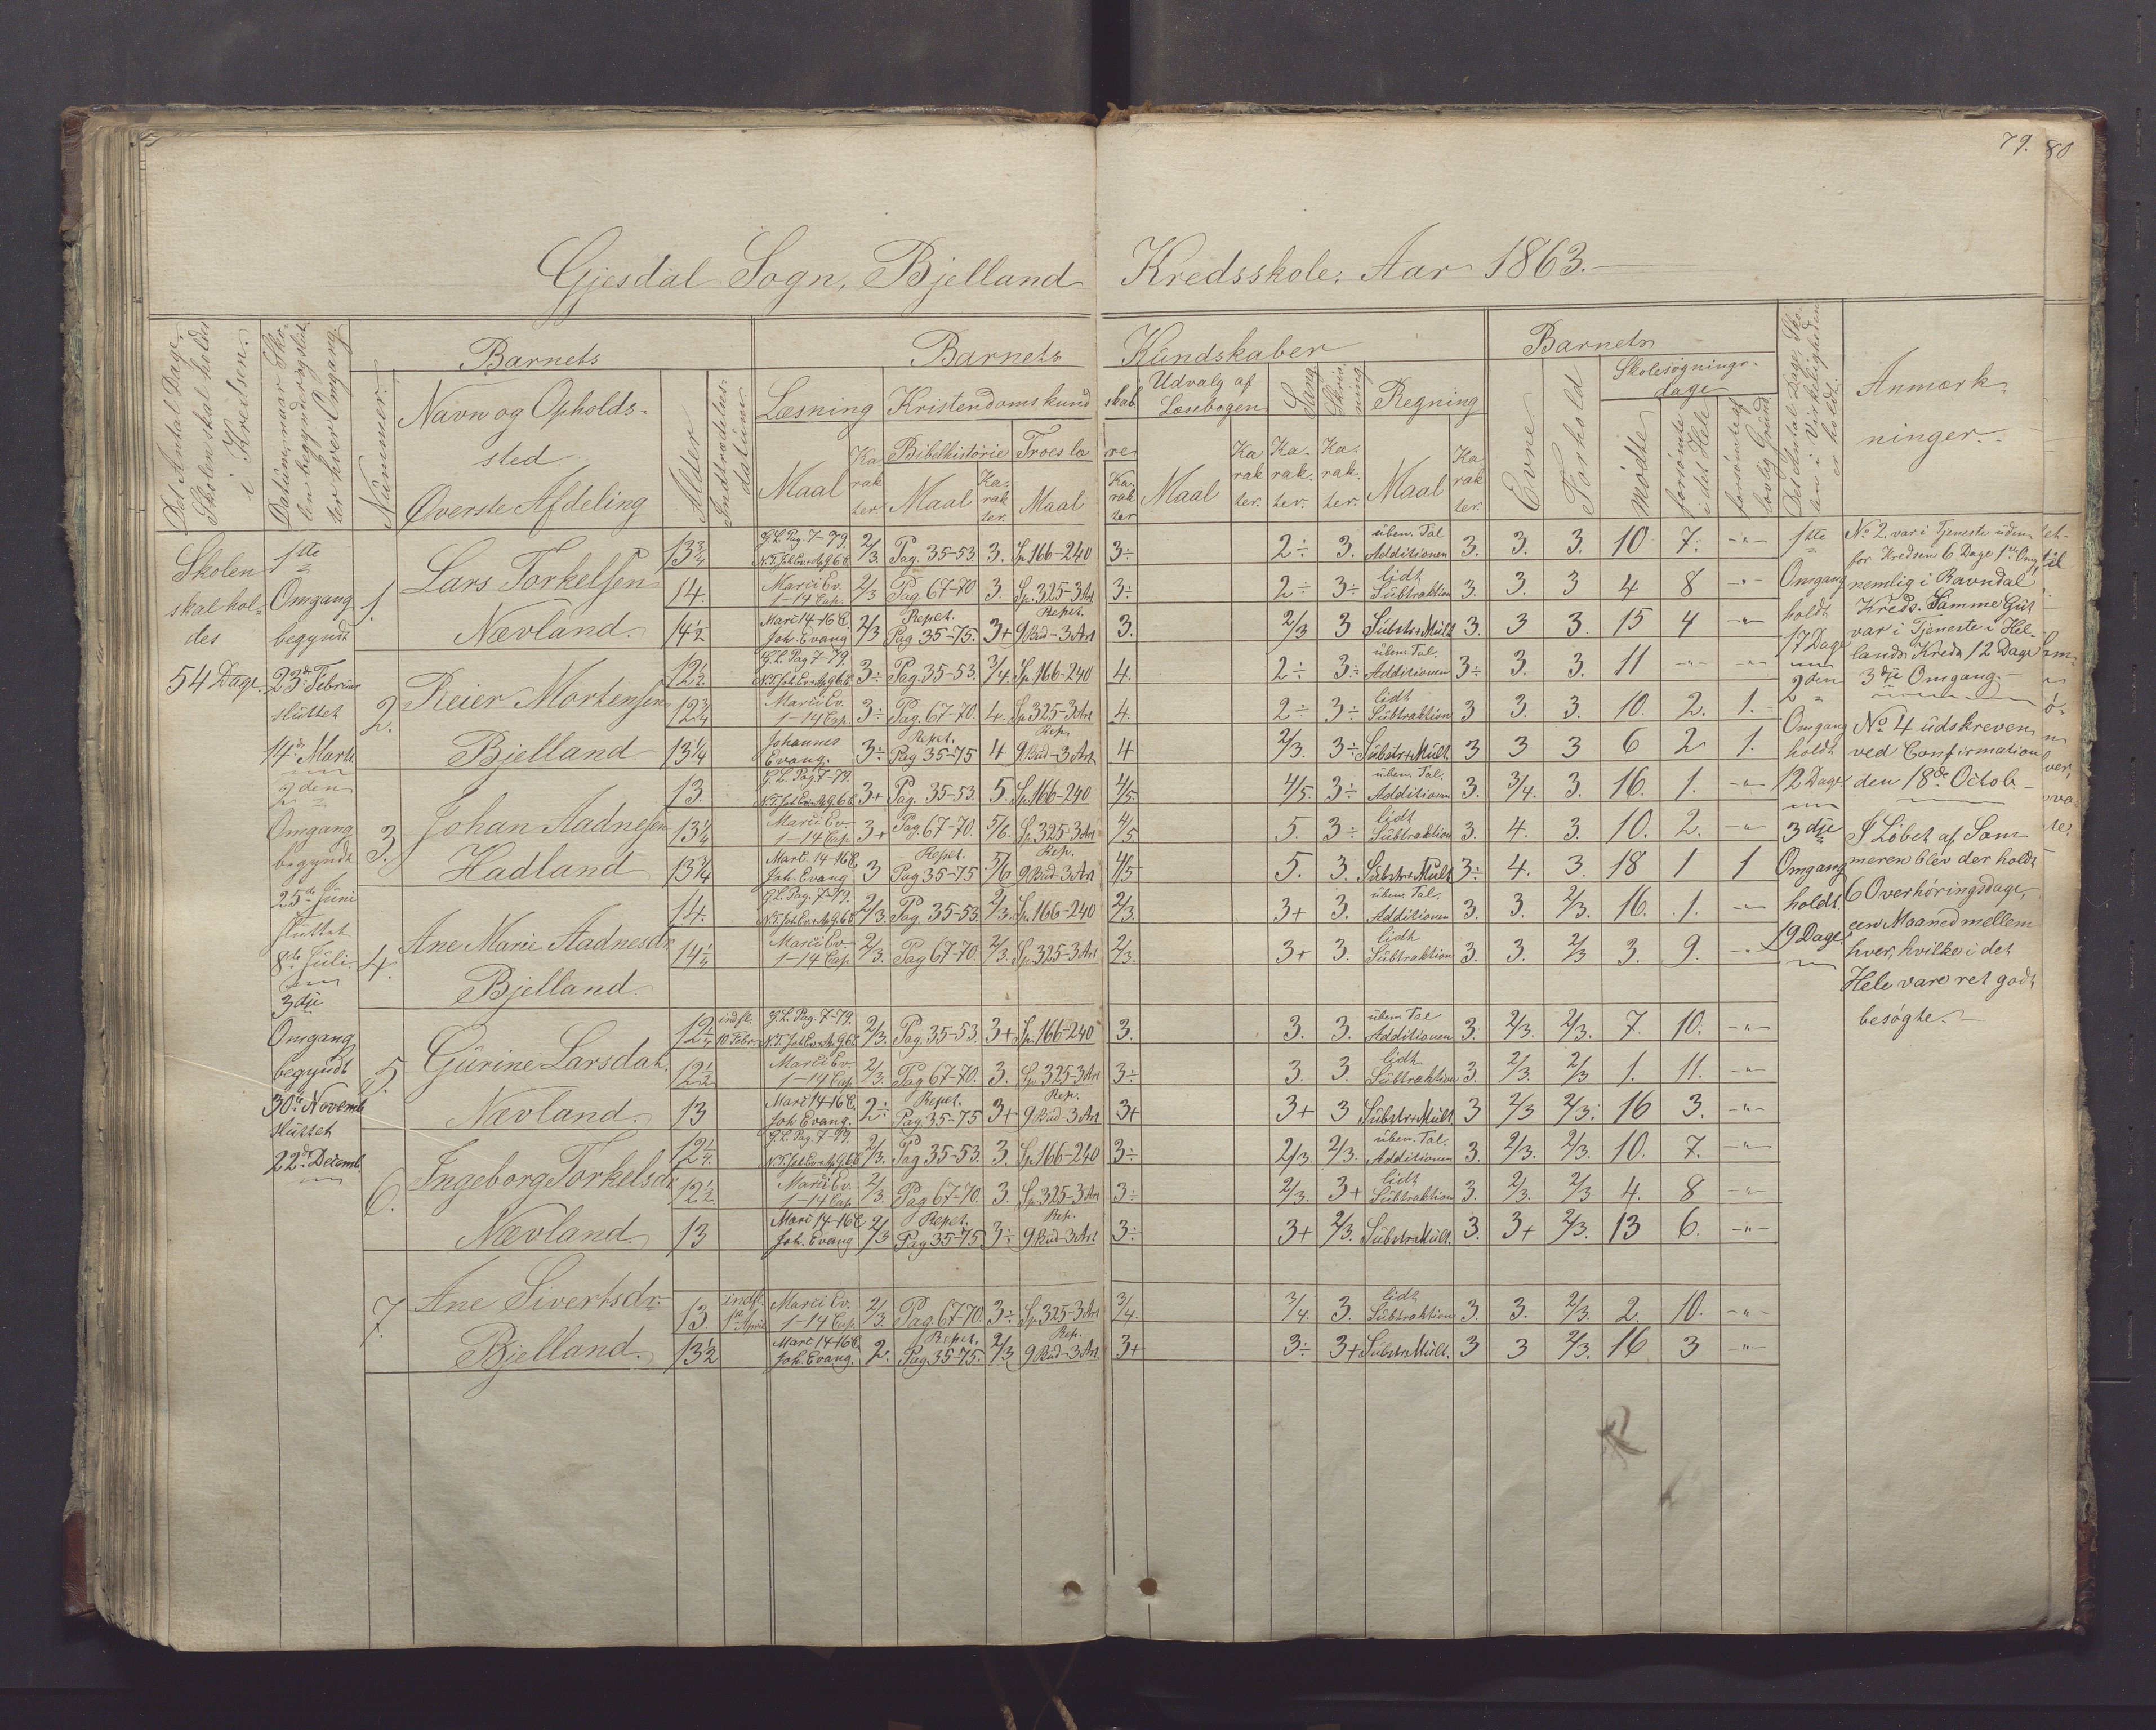 79. 80
Gjesdal Sogn, Bjelland Kredsskole: Aar 1863.
Det Antal Dage, Skolen skal holdes i Kredsen.
Datum, naar Skolen begynder og slutter hver Omgang
Barnets
Nummer.
Navn og Opholdssted
Øverste Afdeling
Alder
Indtrædelsesdatum
Barnets Kundskaber
Læsning
Maal
Karakter
Kristendomskundskab.
Bibelhistorie
Maal
Karakter.
Troeslære
Maal
Karakter
Udvalg af Læsebogen
Maal
Karakter.
Sang
Karakter.
Skrivning
Karakter.
Regning
Maal
Karakter.
Barnets
Evne
Forhold
Skolesøgningsdage
mødte
forsømte i det Hele
forsømte af lovlig Grund
Det Antal Dage, Skolen i Virkeligheden er holdt.
Anmærkninger.
Skolen
skal hol-
des
54 Dage.
1ste
Omgang
begyndt
23de Februar
sluttet
14de Marts
2den
Omgang
begyndt
25de Juni
sluttet
8de Juli
3die
Omgang
begyndt
30te Novemb
sluttet
22de Decemb
1. Lars Torkelsen
Nævland.
13 3/4 G. L. Pag. 7-79. N. T. Joh. Ev. + Ap. G. 6 C. 2/3. Pag. 35-53. 3. Sp. 166-240 3÷ 2÷ 3. üben. Tal Additionen 3. 3. 3. 10 7. -"-
14. Marci Ev. 1-14 Cap. 2/3 Pag 67-70 3. Sp. 325-3 Art 3÷ 2÷ 3÷ lidt Subtraktion 3. 3. 3 4 8 -"-
14 1/2 Marc 14-16 C. Joh. Evang 2/3 Repet. Pag 35-75. 3+ Repet. 9 Bud-3 Art 3. 2/3 3 Substr+Mült 3. 3 3. 15 4 -"-
2. Reier Mortensen
Bjelland
12 1/2 G. L. Pag 7-79. N. T. Joh. Ev. + Ap. G. 6 C. 3÷ Pag. 35-53. 3/4. Sp. 166-240 4. 2÷ 3÷ üben. Tal. Additionen 3÷ 3. 3. 11 -"- -"-
12 3/4 Marci Ev. 1-14 Cap. 3÷ Pag. 67-70. 4. Sp 325-3 Art 4. 2÷ 3÷ lidt Subtraktion 3 3. 3. 10. 2. 1.
13 1/4 Johannes Evang. 3÷ Repet. Pag 35-75 4 Rep. 9 Bud-3 Art 4 2/3. 3÷ Substr+Mült. 3 3 3 6 2 1.
3. Johan Aadnesen
Hadland
13. G. L. Pag. 7-79. N. T. Joh. Ev. + Ap. G. 6 C. 3+ Pag. 35-53. 5. Sp. 166-240 4/5. 4/5. 3÷ üben. Tal. Additionen 3. 3/4. 3. 16. 1. -"-
13 1/4 Marci Ev. 1-14 Cap. 3+ Pag. 67-70. 5/6. Sp. 325-3 Art 4/5 5. 3÷ lidt Subtraktion 3. 4. 3. 10. 2. -"-
13 1/4 Marc. 14-16 C. Joh. Evang 3 Repet. Pag 35-75 5/6 Rep. 9 Bud-3 Art 4/5 5. 3. Substr+Mült 3÷ 4. 3. 18 1 1
4. Ane Marie Aadnesdr.
Bjelland.
14. G. L. Pag. 7-79. N. T. Joh. Ev. + Ap. G. 6 C. 2/3. Pag. 35-53. 2/3. Sp. 166-240 2/3. 3+ 3. üben. Tal. Additionen 3. 3. 2/3. 16. 1. -"-
14 1/4 Marci Ev. 1-14 Cap. 2/3. Pag 67-70. 2/3. Sp. 325-3 Art 2/3. 3+ 3. lidt Subtraktion 3. 3. 2/3 3. 9. -"-
5. Gürine Larsdatr.
Nævland.
12 1/4 indfl. 10 Febr. G. L. Pag. 7-79. N. T. Joh. Ev. + Ap. G. 6 C. 2/3. Pag. 35-53. 3+ Sp. 166-240 3. 3. 3. üben. Tal Additionen 3. 2/3. 2/3. 7. 10. -"-
12 1/2 Marci Ev. 1-14 Cap 2/3. Pag 67-70. 3. Sp. 325-3 Art 3÷ 3. 3. lidt Subtraktion 3. 2/3. 2/3 1. 11. -"-
13 Marc 14-16 C. Joh Evang. 2÷ Repet. Pag. 35-75 3+ Rep. 9 Bud-3 Art 3+ 3+ 3 Substr+Mült. 3 2/3 2/3. 16 3. -"-
6. Ingeborg Torkelsdr.
Nævland.
12 1/4. G. L. Pag. 7-79. N. T. Joh. Ev. + Ap. G. 6 C. 2/3. Pag 35-53. 3. Sp. 166-240 3÷ 2/3. 2/3. üben. Tal. Additionen 3. 2/3. 2/3. 10. 7. -"-
12 1/2 Marci Ev. 1-14 Cap. 2/3. Pag 67-70. 3. Sp. 325-3 Art 3÷ 2/3. 3+ lidt Subtraktion 3. 2/3. 2/3 4. 8 -"-
13 Marc 14-16 C Joh. Evang 2/3 Repet. Pag 35-75 3÷ Rep. 9 Bud-3 Art 3÷ 3+ 2/3. Substr+Mült. 3. 3+ 2/3. 13 6. -"-
7. Ane Sivertsdr.
Bjelland.
13. indfl. 1ste April Marci Ev. 1-14 Cap. 2/3. Pag 67-70. 3÷ Sp. 325-3 Art 3/4. 3/4. 3. lidt Subtraktion 3. 3. 2/3. 2. 10. -"-
13 1/2 Marc 14-16 C. Joh. Evang. 2. Repet. Pag. 35-75. 2/3 Rep. 9 Bud-3 Art 3+ 3÷ 3+ Substr+Mült. 3 3 2/3. 16 3 -"-
1ste
Omgang
holdt
17 Dage
2den
Omgang
holdt
12 Dage
3die
Omgang
holdt.
19 Dage.
No 2. var i Tjeneste uden-
for Kredsen 6 Dage 1ste Omg,
nemlig i Ravndal
Kreds. Samme Gut
var i Tjeneste i Hel-
lands Kreds 12 Dage
3die Omgang.
No 4 üdskreven
ved Confirmation
den 18de Octob.
I Løbet af Som-
meren blev der holdt
6 Overhøringsdage,
een Maaned mellem
hver, hvilke i det
Hele vare ret godt
besøgte.